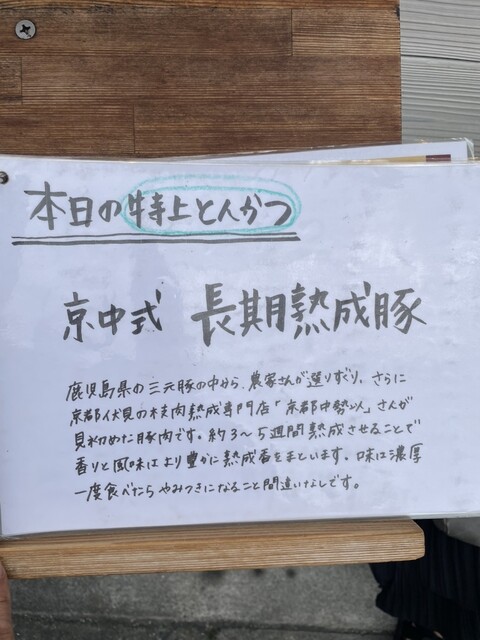 本日の特上とんかつ
京中式 長期熟成豚
鹿児島県の三元豚の中から、農家さんが選りすぐり、さらに
京都伏見の枝肉熟成専門店「京都中勢以」さんが
見初めた豚肉です。約3〜5週間熟成させることで
香りと風味はより豊かに熟成香をまといます。味は濃厚
一度食べたらやみつきになること間違いなしです。